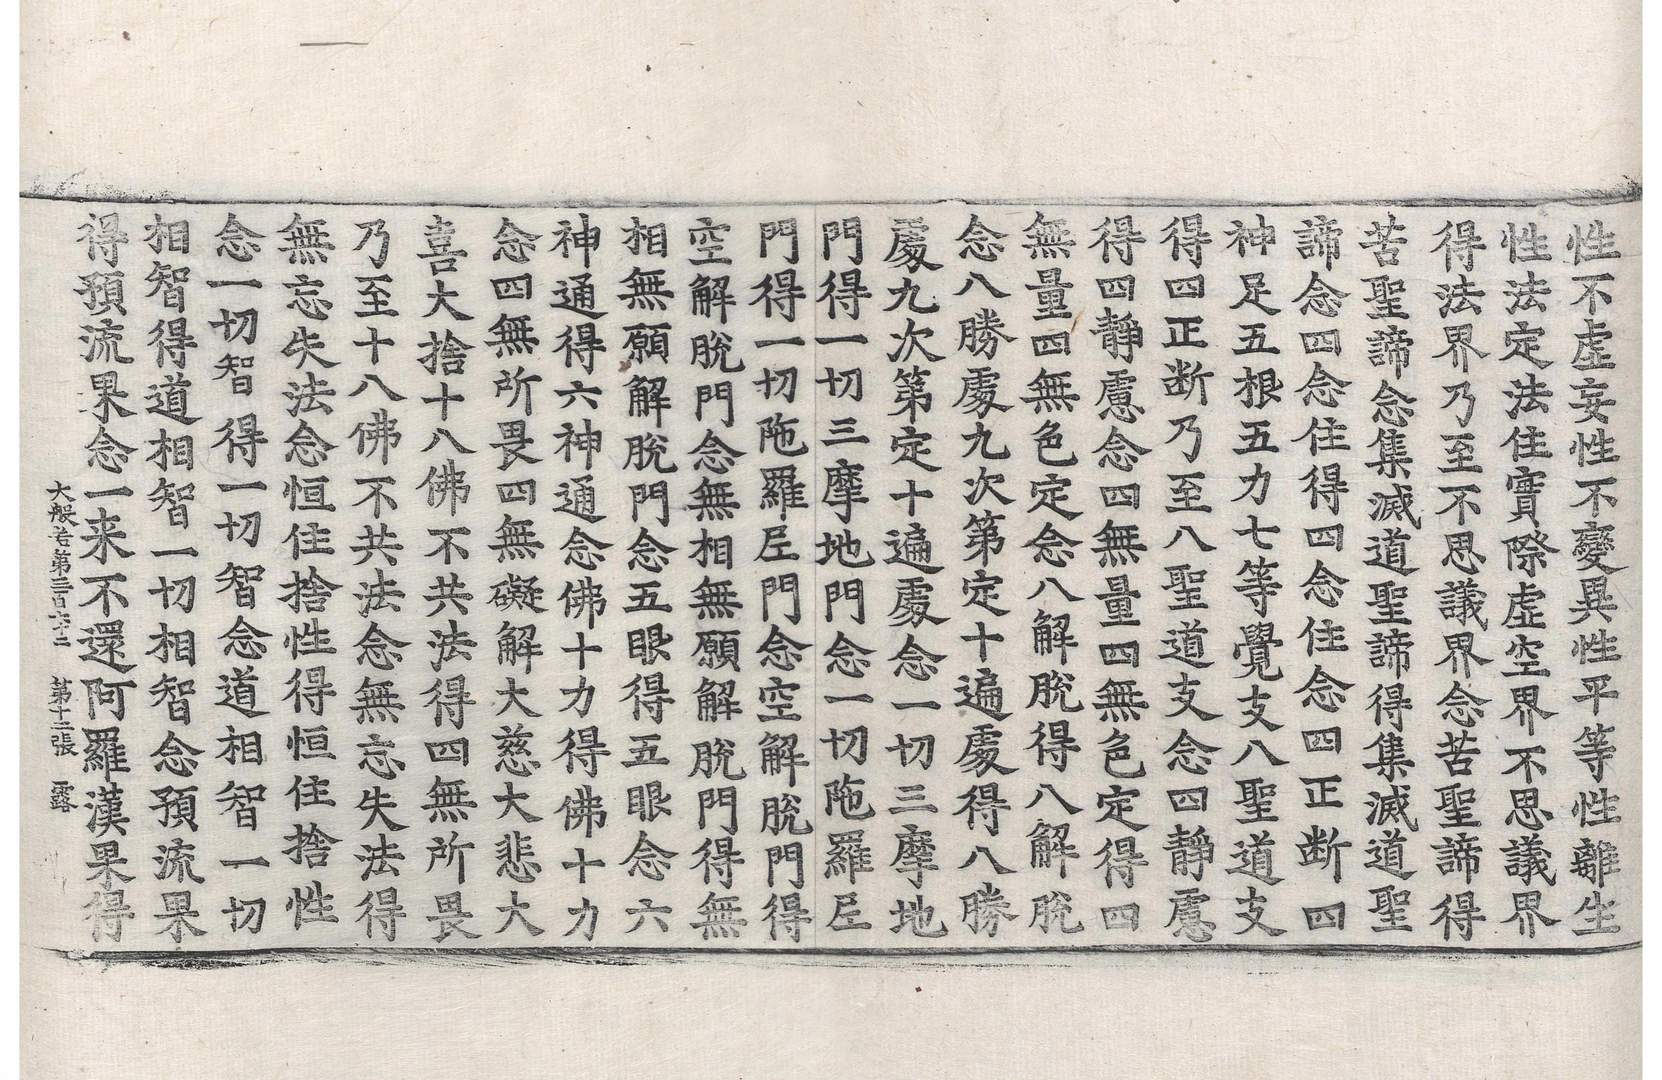 性不虛妄性不變異性平等性離生
性法定法住實際虛空界不思議界
得法界乃至不思議界念苦聖諦得
苦聖諦念集滅道聖諦得集滅道聖
諦念四念住得四念住念四正断四
神足五根五力七等覺支八聖道支
得四正断乃至八聖道支念四靜慮
得四靜慮念四無量四無色定得四
無量四無色定念八解脫得八解脫
念八勝處九次第定十遍處得八勝
處九次第定十遍處念一切三摩地
門得一切三摩地門念一切陁羅尼
門得一切陁羅尼門念空解脫門得
空解脫門念無相無願解脫門得無
相無願解脫門念五眼得五眼念六
神通得六神通念佛十力得佛十力
念四無所畏四無礙解大慈大悲大
喜大捨十八佛不共法得四無所畏
乃至十八佛不共法念無忘失法得
無忘失法念恒住捨性得恒住捨性
念一切智得一切智念道相智一切
相智得道相智一切相智念預流果
得預流果念一来不還阿羅漢果得
大般若第三百六十二 第十二張 露